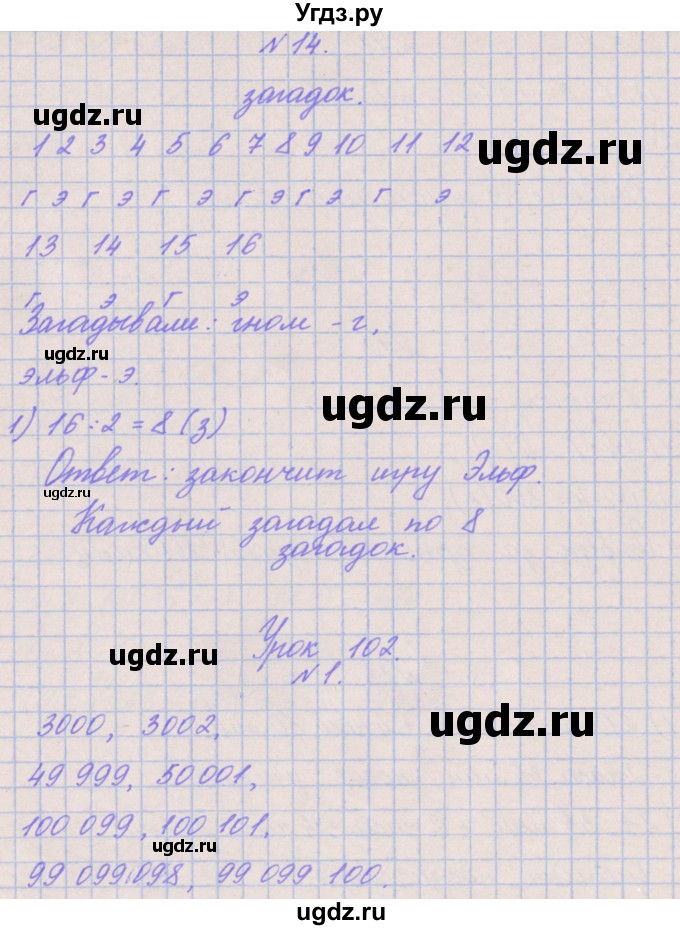 Угдз.ру
№ 14.
загадок.
ugdz.ru
1 2 3 4 5 6 7 8 9 10 11 12
ugdz.ru
г э г э г э г э г э г э
13 14 15 16
г э г э
Загадывали: гном - г,
ugdz.ru
эльф - э.
ugdz.ru
1) 16 : 2 = 8 (з)
Ответ: закончит игру Эльф.
ugdz.ru
Каждый загадал по 8
загадок.
Урок 102.
ugdz.ru
№ 1.
3000, 3002,
ugdz.ru
49 999, 50 001,
100 099, 100 101,
ugdz.ru
99 099 098, 99 099 100.
ugdz.ru